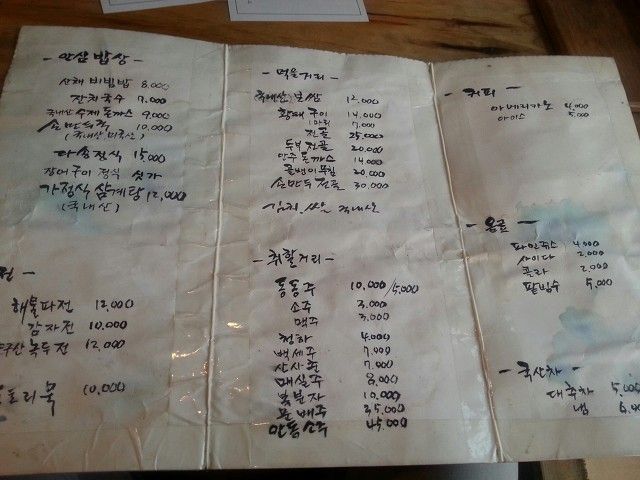 - 안심 밥상 -
산채 비빔밥 8,000
잔치국수 7,000
국내산 수제 돈까스 9,000
손만두국 10,000
(국내산, 미국산)
다슬정식 15,000
장어구이 정식 싯가
가정식 삼계탕 12,000
(국내산)
전 -
해물파전 12,000
감자전 10,000
녹두전 12,000
도토리묵 10,000
- 먹을거리 -
국내산 보쌈 12,000
황태구이 14,000
1마리 7,000
전골 25,000
두부전골 20,000
안주 돈까스 14,000
골뱅이무침 20,000
손만두전골 30,000
김치, 쌀 국내산
- 취할거리 -
동동주 10,000/5,000
소주 3,000
맥주 3,000
청하 4,000
백세주 7,000
산사춘 7,000
매실주 8,000
복분자 10,000
문배주 35,000
안동소주 45,000
- 커피 -
아메리카노 4,000
아이스 5,000
- 음료 -
파인쥬스 4,000
사이다 2,000
콜라 2,000
팥빙수 5,000
- 국산차 -
대추차 5,0
냉 6,0